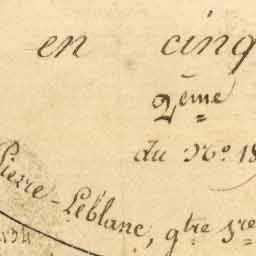 en cinq
2ème
du No. 18
Pierre-Leblanc, gtre
134